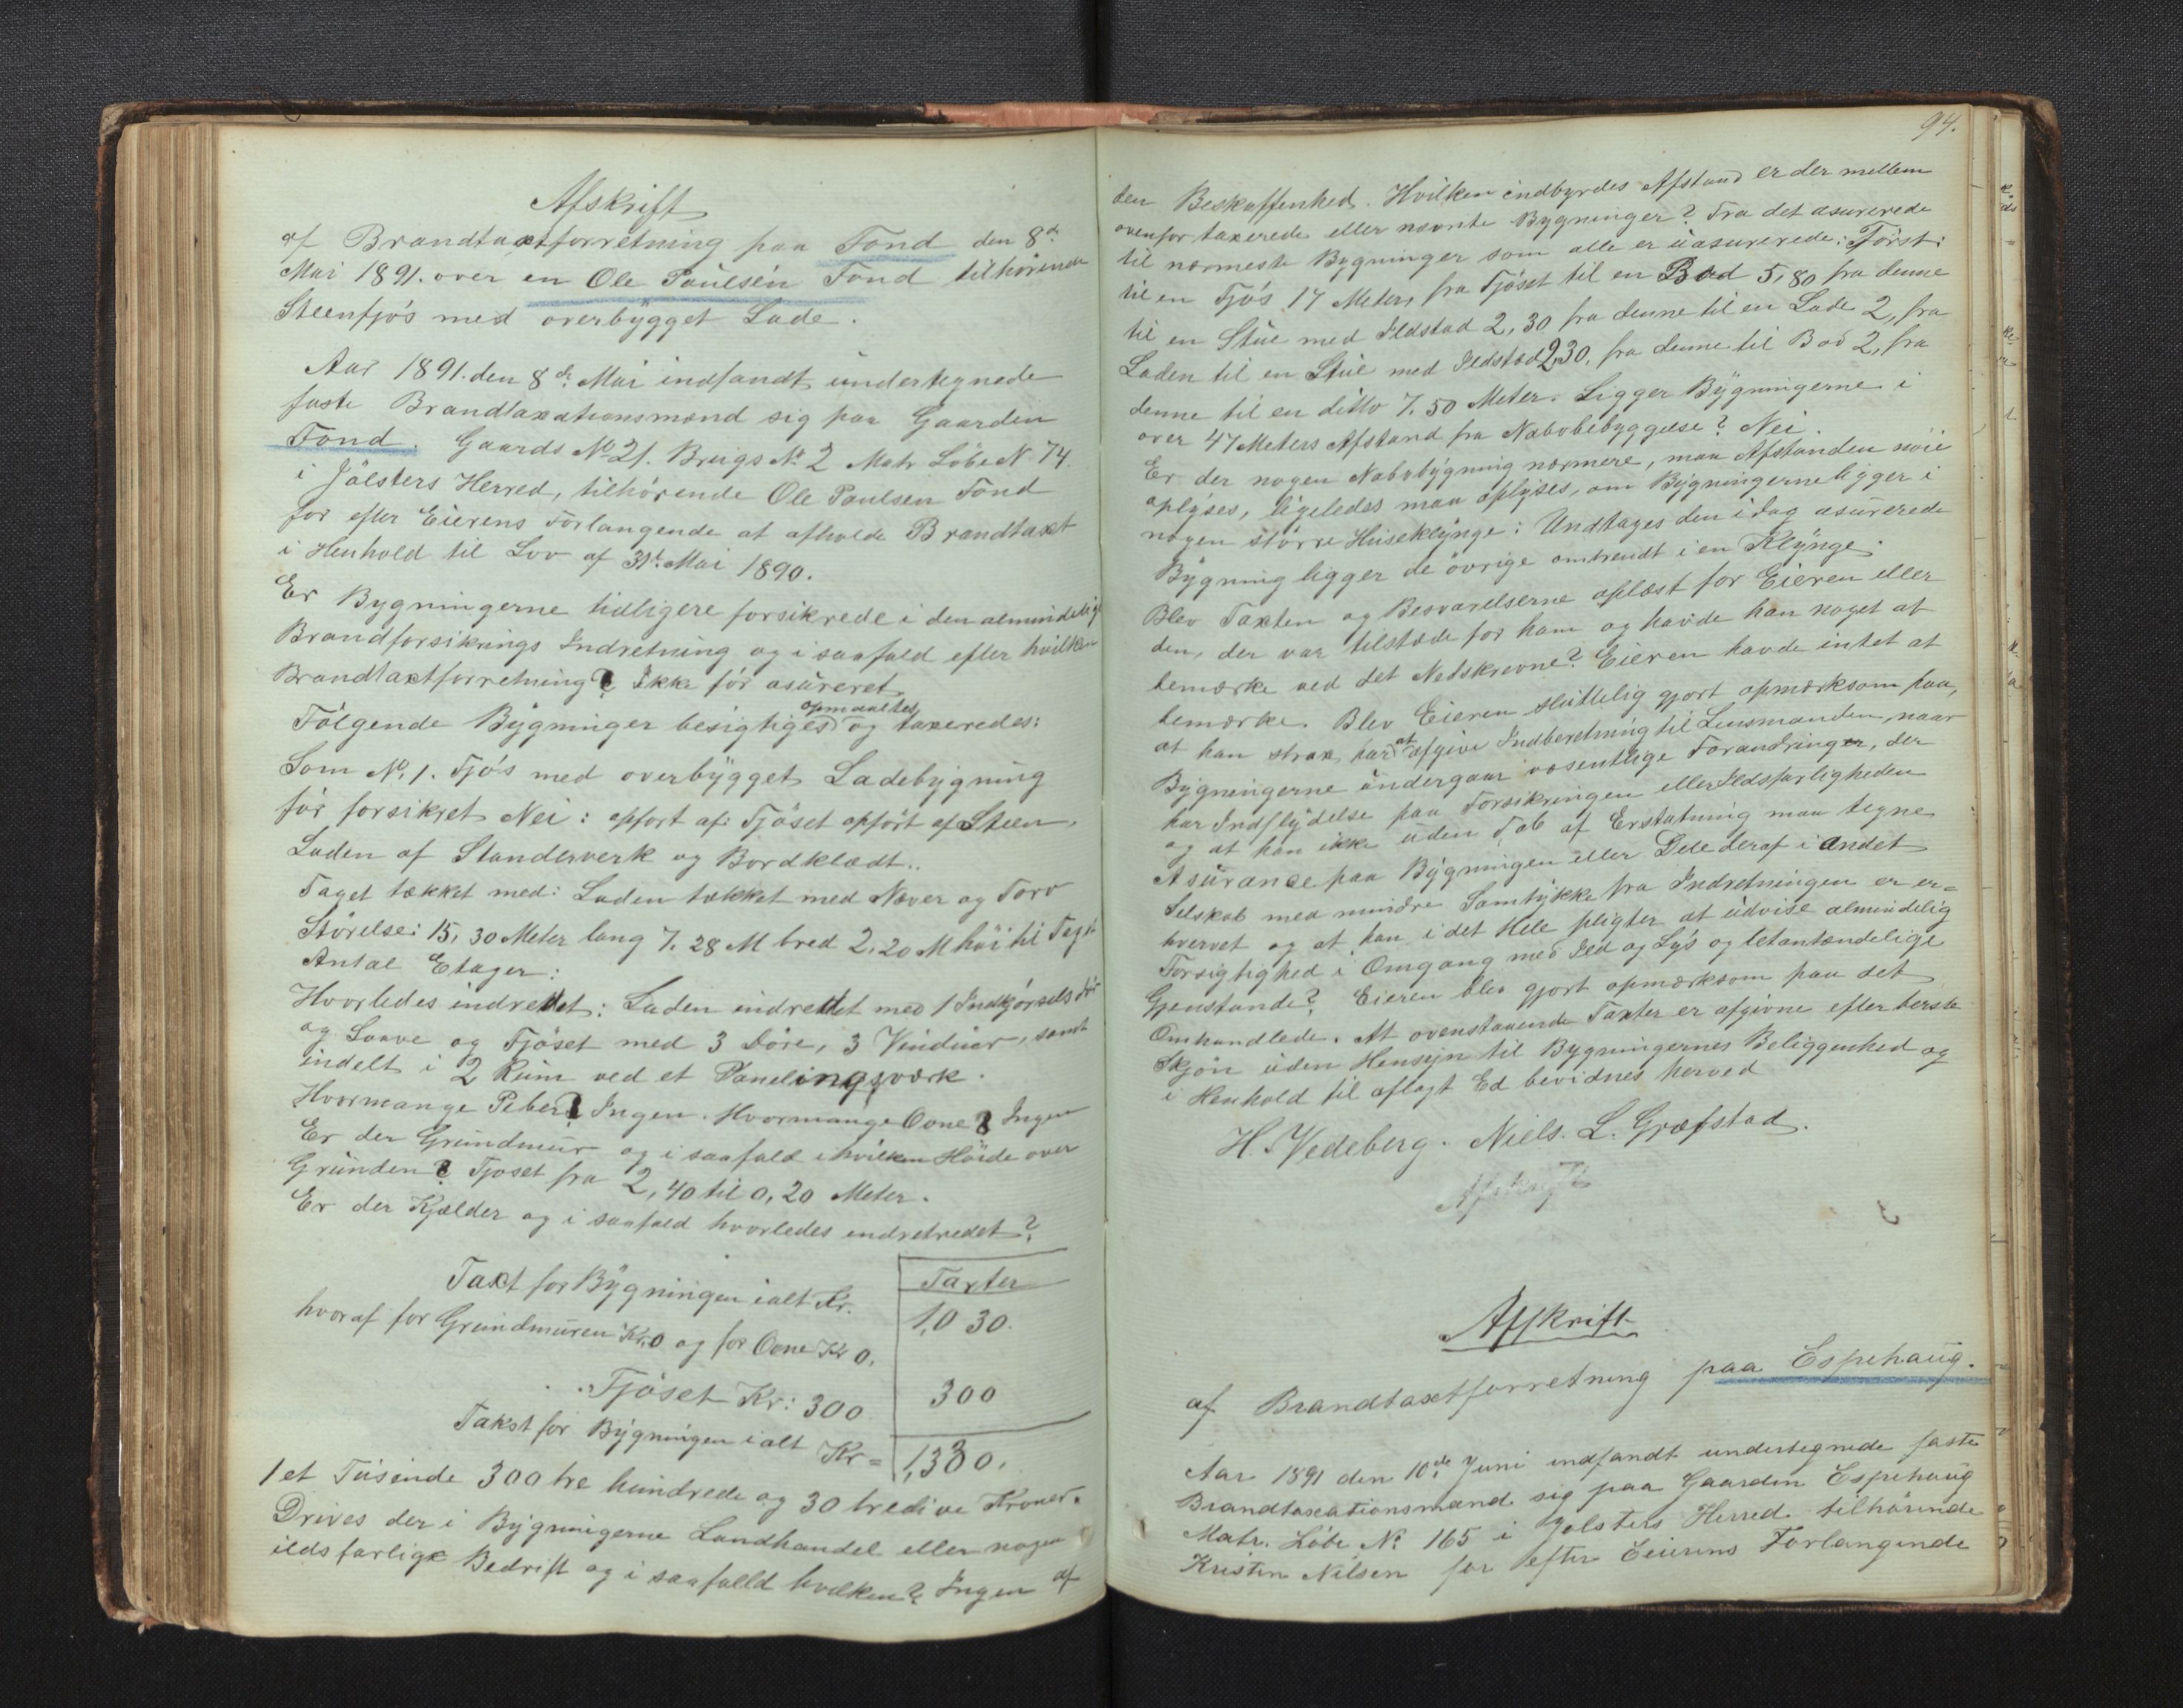 Afskrift
af Brandtaxtforretning paa Fond den 8de
Mai 1891. over en Ole Paulsen Fond tilhørende
Steenfjøs med overbygget Lade.
Aar 1891. den 8de Mai indfandt undertegnede
faste Brandtaxationsmænd sig paa Gaarden
Fond. Gaards No 21. Brugs No 2 Matr Løbe N 74.
i Jølsters Herred, tilhørende Ole Paulsen Fond
for efter Eierens Forlangende at afholde Brandtaxt
i Henhold til Lov af 31t Mai 1890.
Er Bygningerne tidligere forsikrede i den almindelige
Brandforsikrings Indretning og i saafald efter hvilken
Brandtaxtforretning? Ikke før asureret
Følgende Bygninger besigtiges opmaaltes og taxeredes:
Som No. 1. Fjøs med overbygget Ladebygning
før forsikret Nei: opfort af: Fjøset opført af Steen,
Laden af Standerverk og Bordklædt..
Taget tækket med: Laden tækket med Næver og Torv
Størelse: 15,30 Meter lang 7.28 M bred 2.20 M høi til Taget
Antal Etager:
Hvorledes indrettet: Laden indrettet med 1 Indkjørsels dør
og Laave og Fjøset med 3 Døre, 3 Vinduer, samt
indelt i 2 Rum ved et Panelingsværk.
Hvormange Peber? Ingen. Hvormange Ovne? Ingen
Er der Grundmur og i saafald i hvilken Høide over
Grunden? Fjøset fra 2,40 til 0,20 Meter.
Er der Kjælder og i saafald hvorledes endretredet?
Taxter
Taxt for Bygningen ialt Kr. 1,030.
hvoraf for Grundmuren Kr. 0 og for Ovne Kr 0.
Fjøset Kr: 300 300
Takst for Bygningen ialt Kr = 1,330.
1 et Tusinde 300 tre hundrede og 30 tredive Kroner.
Drives der i Bygningerne Landhandel eller nogen
ildsfarlige Bedrift og i saafalld hvilken? Ingen af
94.
den Beskaffenhed. Hvilken indbyrdes Afstand er der mellem
ovenfor taxerede eller nævnte Bygninger? Fra det asurerede
til nærmeste Bygninger som alle er uasurerede: Først:
til en Fjøs 17 Meter, fra Fjøset til en Bod 5,80 fra denne
til en Stue med Ildstad 2,30 fra denne til en Lade 2, fra
Laden til en Stue med Ildstæd 2,30. fra denne til Bod 2, fra
denne til en ditto 7.50 Meter. Ligger Bygningerne i
over 47 Meters Afstand fra Nabobebyggelse? Nei.
Er der nogen Nabobygning nærmere, maa Afstanden nøie
oplyses, ligeledes maa oplyses, om Bygningerne ligger i
nogen større Huseklynge: Undtages den i dag asurerede
Bygning ligger de øvrige omtrendt i en Klynge.
Blev Taxten og Besvarelserne oplæst for Eieren eller
den, der var tilstæde for ham og havde han noget at
bemærke ved det Nedskrevne? Eieren havde intet at
bemærke. Blev Eieren sluttelig gjort opmærksom paa,
at han strax har at afgive Indberetning til Lensmanden, naar
Bygningerne undergaar væsentlige Forandringer, der
har Indflydelse paa Forsikringen eller Ildsfarligheden
og at han ikke uden Tab af Erstatning maa tegne
Asurance paa Bygningen eller Dele deraf i andet
Selskab med mindre Samtykke fra Indretningen er er=
hvervet og at han i det Hele pligter at udvise almindelig
Forsigtighed i Omgang med Ild og Lys og letantændelige
Gjenstande? Eieren blev gjort opmærksom paa det
Omhandlede. At ovenstaaende Taxter er afgivne efter berste
Skjøn uden Hensyn til Bygningernes Beliggenhed og
i Henhold til aflagt Ed bevidnes herved
H. Vedeberg. Niels. L. Græfstad.
Afskrift
Afskrift
af Brandtaxtforretning paa Espehaug.
Aar 1891 den 10de Juni indfandt undertegnede faste
Brandtaxationsmænd sig paa Gaarden Espehaug
Matr. Løbe No 165 i Jølsters Herred tilhørende
Kristen Nilsen for efter Eierens Forlangende